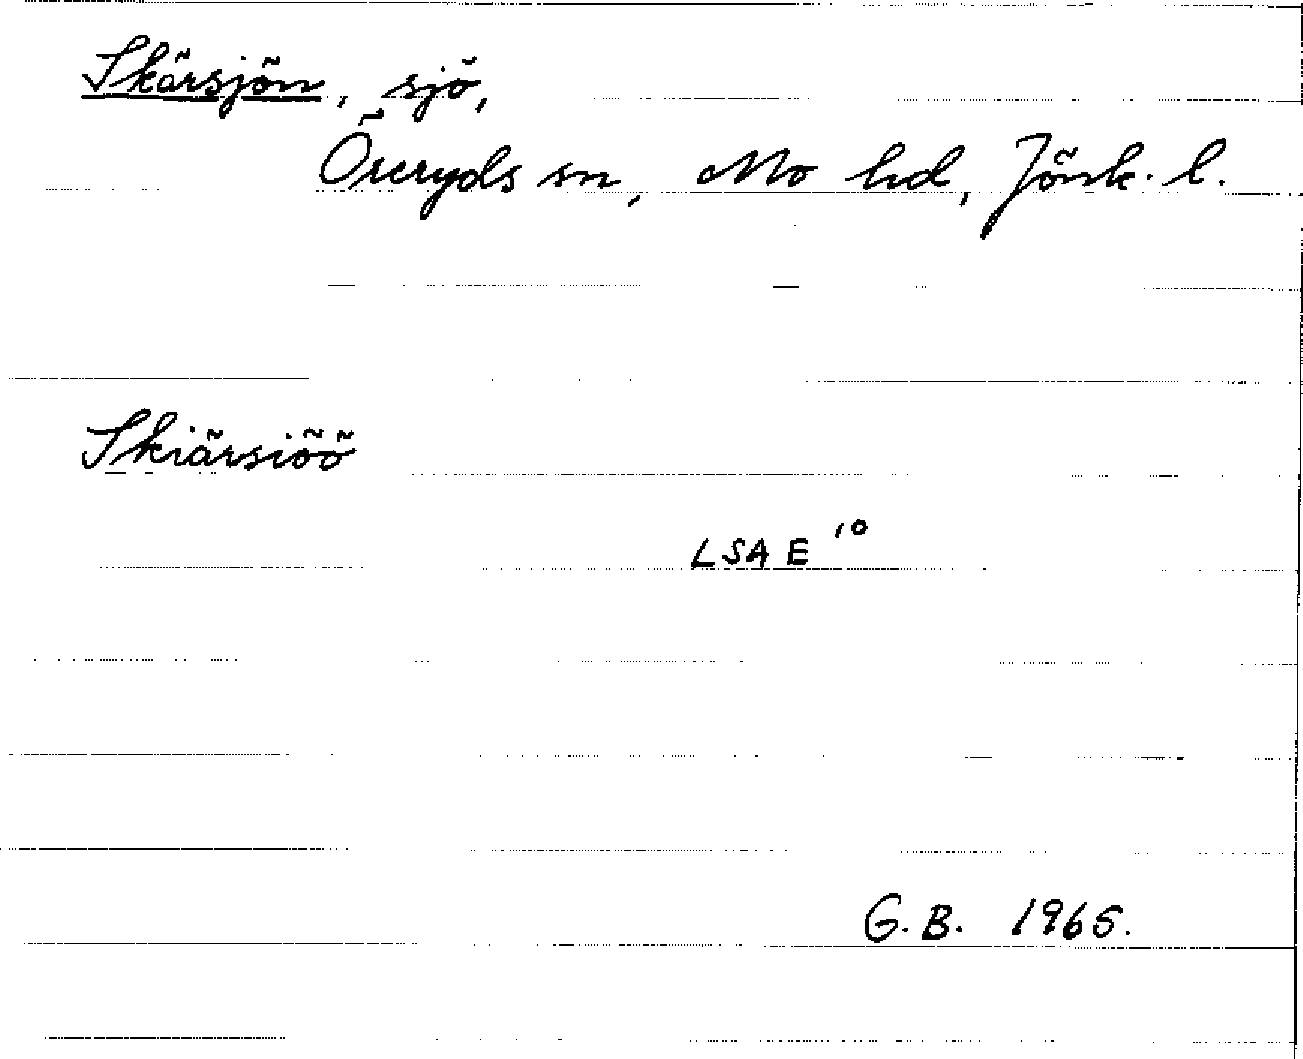 Skärsjön, sjö,
Öreryds sn, Mo hd, Jönk. l.
Skiärsiöö
LSA E 10
G.B. 1965.